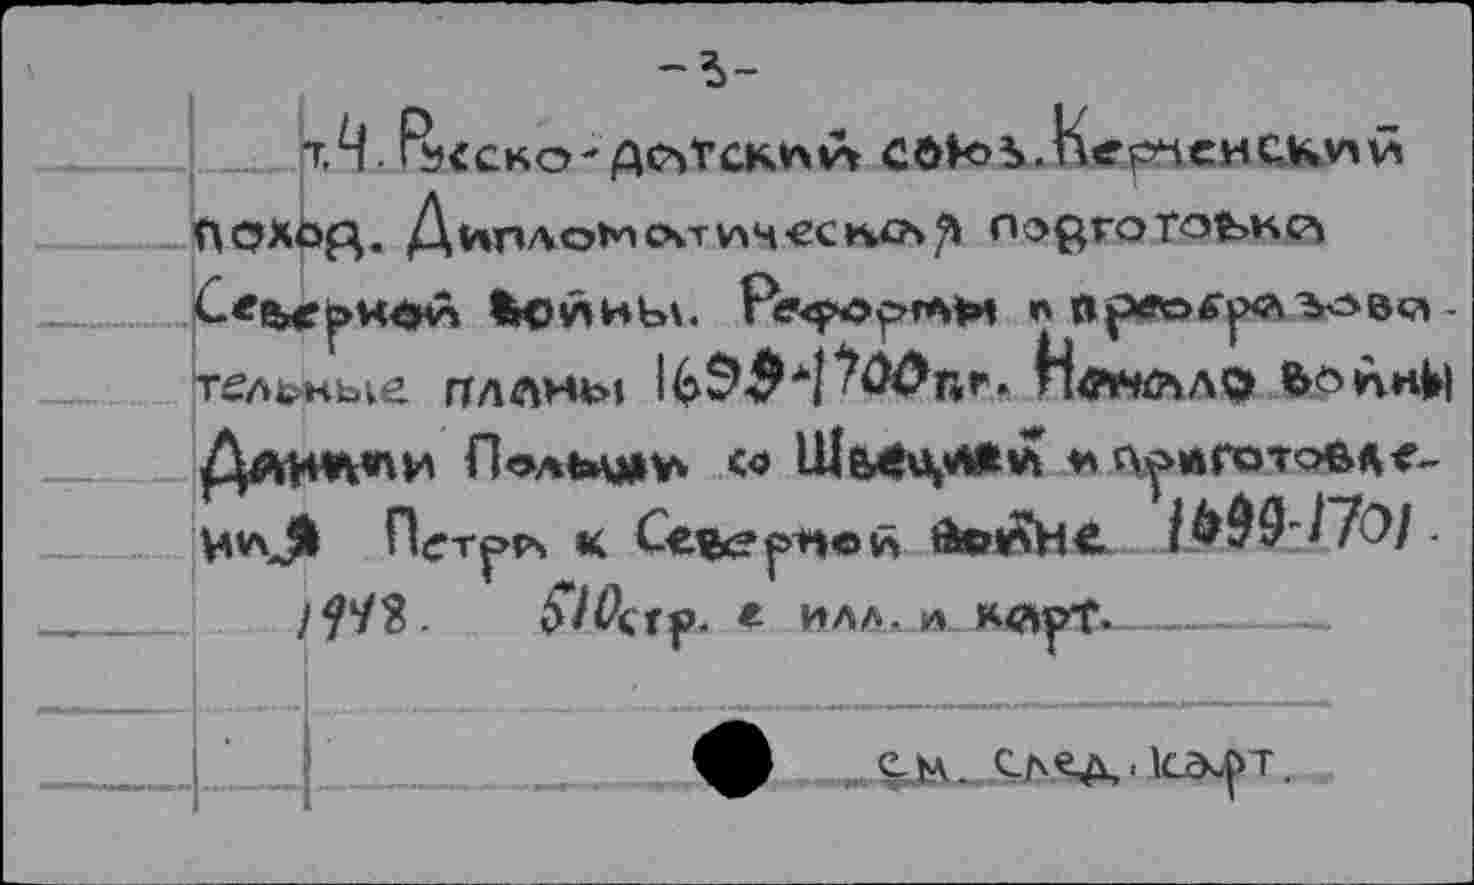 -3-
т.4. Русско-датский союз. Керченский
поход. Дипломатическая подготовка
Северной войны. Реформы и преобразова-
тельные планы 1699-1700гг. Начало войны
Дании и Польши со Швецией и приготовле-
ния Петра к Северной войне 1699-1701.
1948. 510стр. с илл. и карт.
см. след. карт.